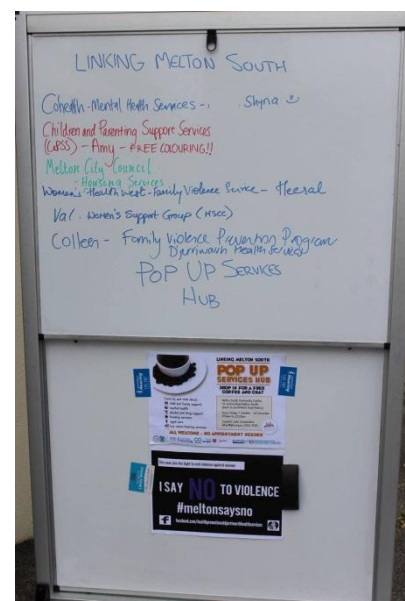 LINKING MELTON SOUTH
Cohealth - Mental Health Services - Shyna
Children and Parenting Support Services
(CaPSS) - Amy - FREE COLOURING!!
Melton City Council
- Housing Services
Women's Health West - Family Violence Service - Heeral
Val. Women's Support Group (MSCC)
Colleen - Family Violence Prevention Program
Djerriwarrh Health Services
POP UP SERVICES
HUB
LINKING MELTON SOUTH
POP UP
SERVICES HUB
DROP IN FOR A FREE
COFFEE AND CHAT
mental health
housing services
ALL WELCOME - NO APPOINTMENT NEEDED
I SAY NO TO VIOLENCE
#meltonsaysno